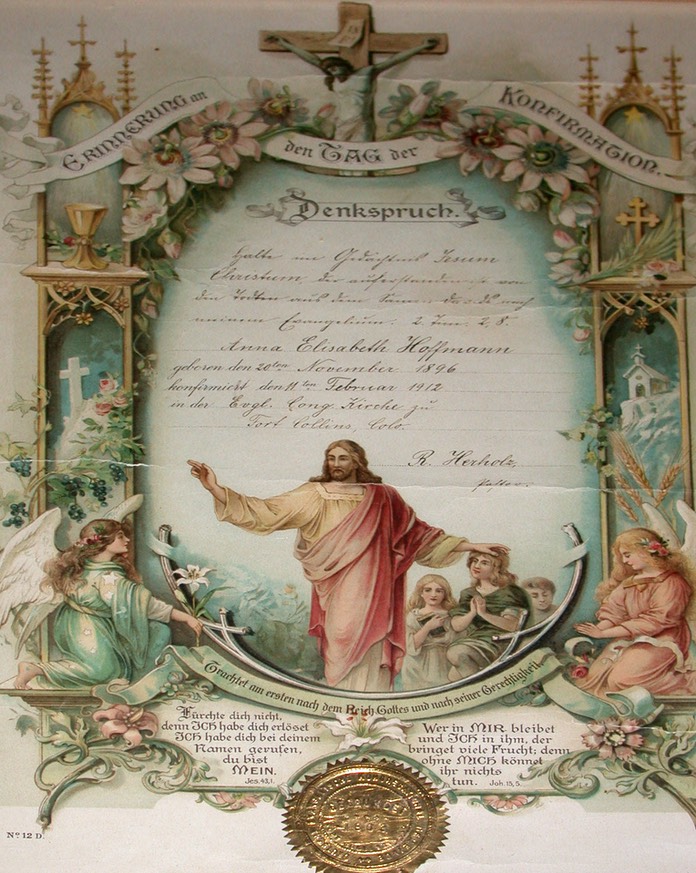 ERINNERUNG an
den TAG der
KONFIRMATION.
Denkspruch.
Halte im Gedächtnis Jesum
Christum, der auferstanden ist von
den Todten aus dem Samen Davids nach
meinem Evangelium. 2. Tim. 2, 8.
Anna Elisabeth Hoffmann
geboren den 20ten November 1896
konfirmiert den 11ten Februar 1912
in der Evgl. Cong. Kirche zu
Fort Collins, Colo.
R. Herholz,
Pastor.
Trachtet am ersten nach dem Reich Gottes und nach seiner Gerechtigkeit
Fürchte dich nicht,
denn ICH habe dich erlöset
ICH habe dich bei deinem
Namen gerufen,
du bist
MEIN.
Jes. 43,1.
Wer in MIR bleibet
und ICH in ihm, der
bringet viele Frucht; denn
ohne MICH könnet
ihr nichts
tun. Joh. 15,5.
No 12 D.